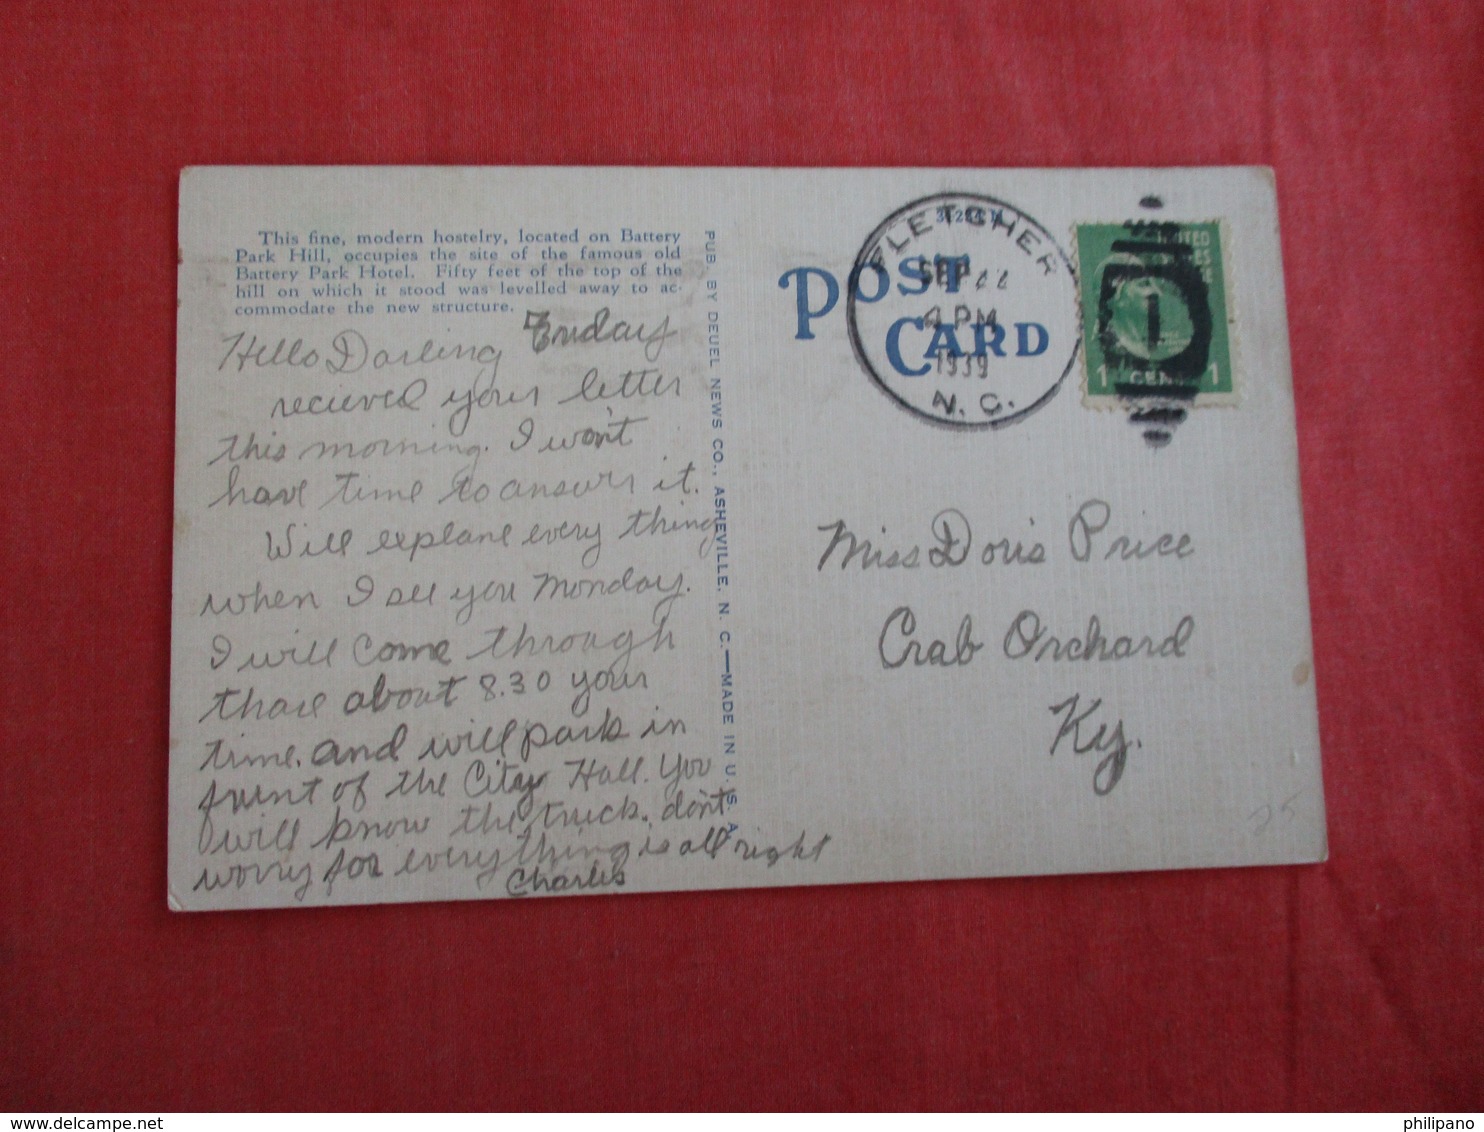 This fine, modern hostelry, located on Battery
Park Hill, occupies the site of the famous old
Battery Park Hotel. Fifty feet of the top of the
hill on which it stood was levelled away to ac-
commodate the new structure.
Friday
Hello Darling
recieved your letter
this morning. I won't
have time to answer it.
Will explane every thing
when I see you Monday.
I will come through
thare about 8.30 your
time. and will park in
frunt of the City Hall. You
will know the truck. don't
worry for everything is all right
Charles
PUB. BY DEUEL NEWS CO., ASHEVILLE, N. C.—MADE IN U. S. A.
POST
CARD
FLETCHER
SEP
4 PM
1939
N. C.
UNITED
1 CENT 1
1
Miss Doris Price
Crab Orchard
Ky.
25
philipano